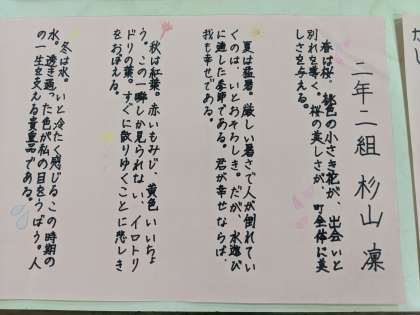 二年二組 杉山 凛
春は桜。桃色の小さき花が、出会いと
別れを導く。桜の美しさが、町全体に美
しさを与える。
夏は猛暑。厳しい暑さで人が倒れてい
くのは、いとおそろしき。だが、水遊び
に適した季節である。君が幸せならば、
我も幸せである。
秋は紅葉。赤いもみじ、黄色いいちょ
う。この一瞬しか見られない、イロトリ
ドリの葉。すぐに散りゆくことに悲しき
をおぼえる。
冬は水。いと冷たく感じるこの時期の
水。透き通った色が私の目をうばう。人
の一生を支える貴重品である。